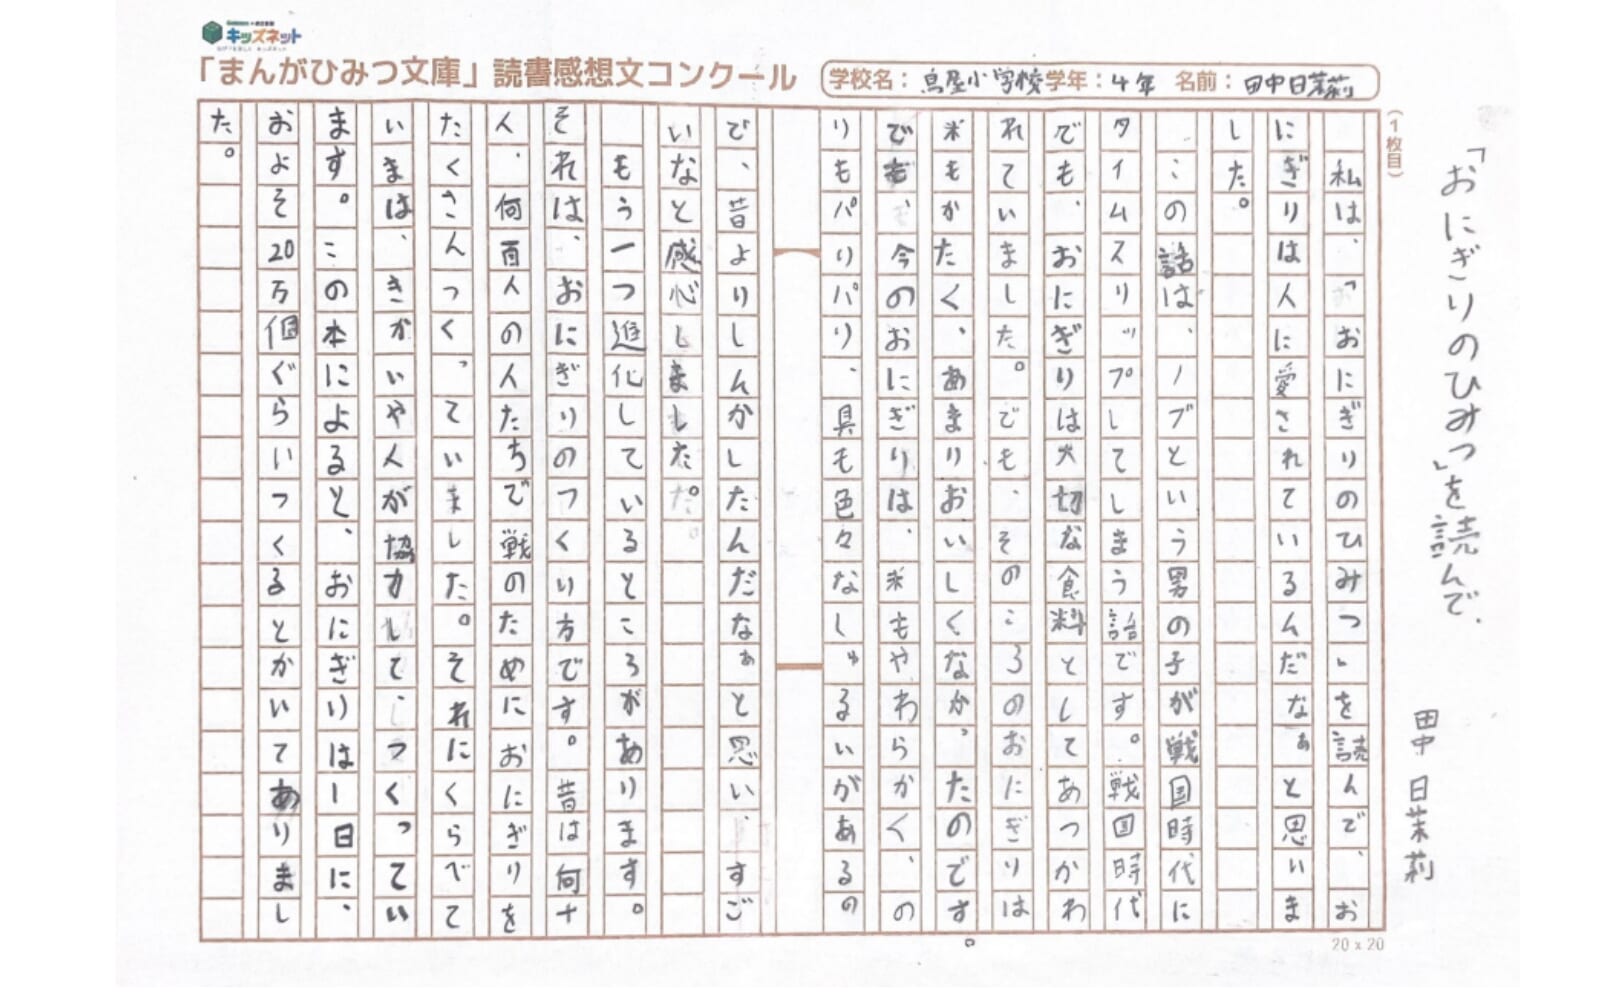 キッズネット
「まんがひみつ文庫」読書感想文コンクール
学校名：鳥屋小学校 学年：4年 名前：田中日茉莉
(1枚目)
「おにぎりのひみつ」を読んで、
田中 日茉莉
私は、「おにぎりのひみつ」を読んで、お
にぎりは人に愛されているんだなぁと思いま
した。
この話は、ノブという男の子が戦国時代に
タイムスリップしてしまう話です。戦国時代
でも、おにぎりは大切な食料としてあつかわ
れていました。でも、そのころのおにぎりは
米もかたく、あまりおいしくなかったのです。
でも、今のおにぎりは、米もやわらかく、の
りもパリパリ、具も色々なしゅるいがあるの
で、昔よりしんかしたんだなぁと思い、すご
いなと感心しました。
もう一つ進化しているところがあります。
それは、おにぎりのつくり方です。昔は何十
人、何百人の人たちで戦のためにおにぎりを
たくさんつくっていました。それにくらべて
いまは、きかいや人が協力してつくってい
ます。この本によると、おにぎりは一日に、
およそ20万個ぐらいつくるとかいてありまし
た。
20×20